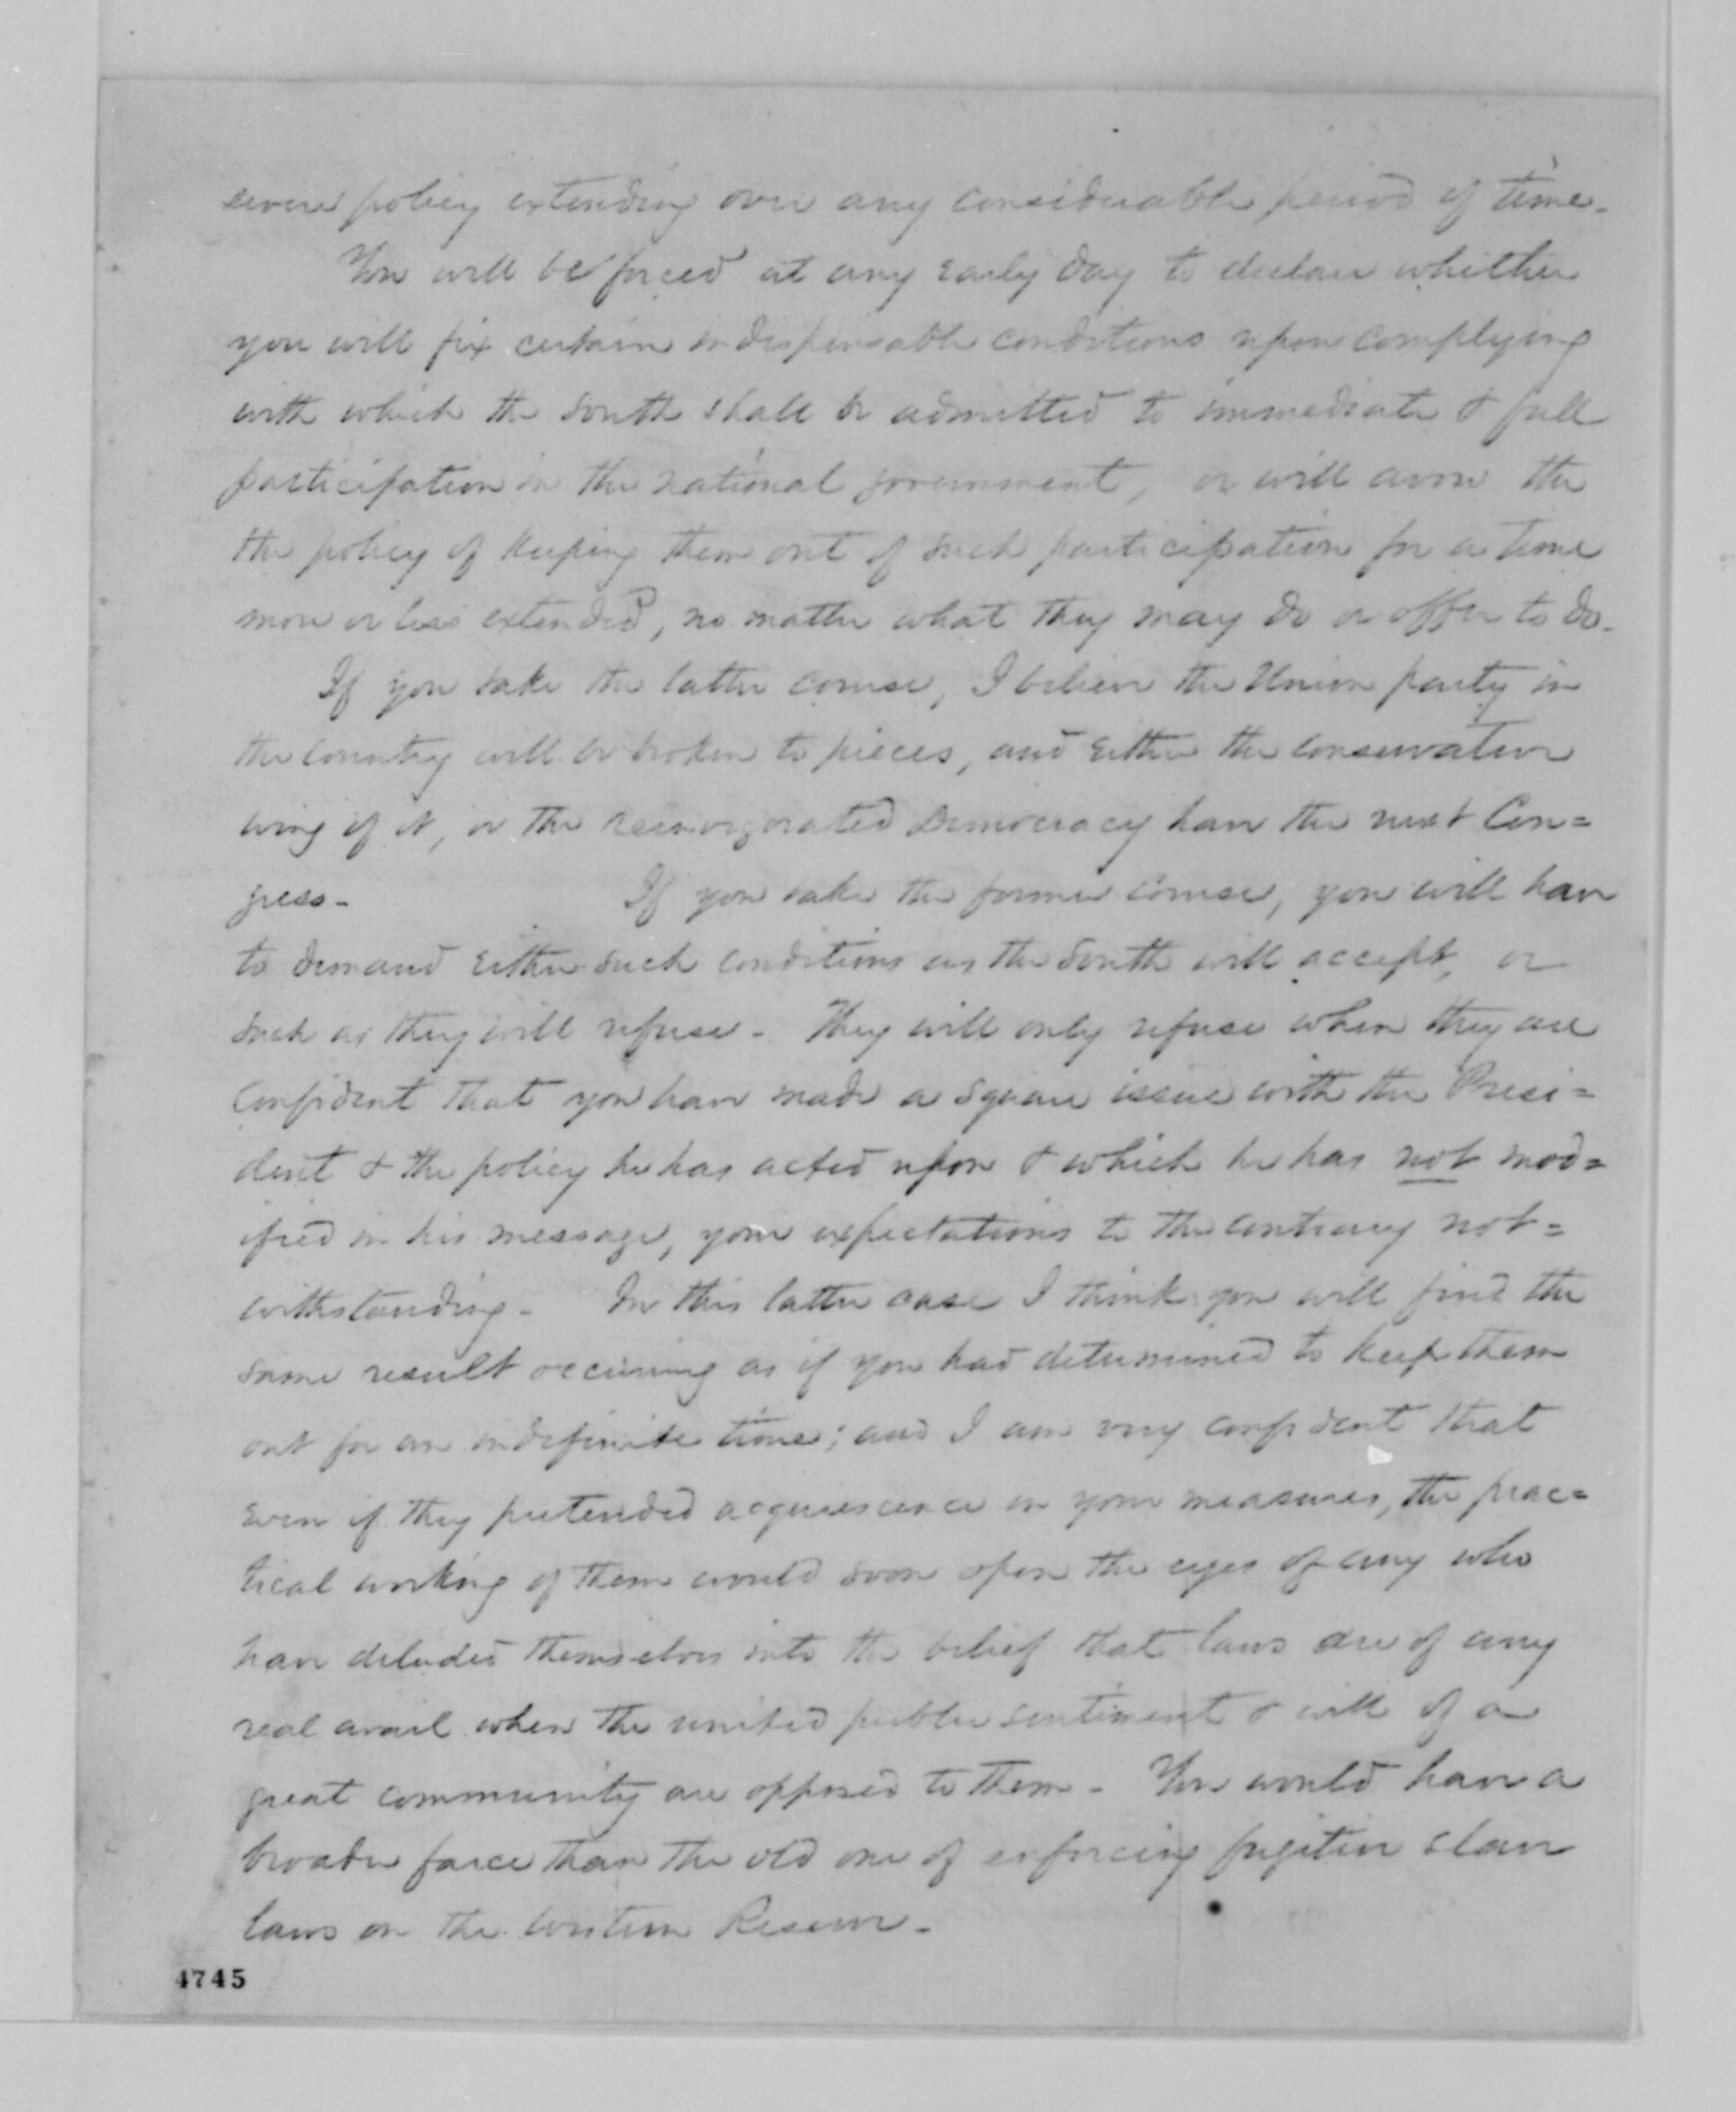 severe policy extending over any considerable period of time.
You will be forced at any early day to declare whether
you will fix certain indispensable conditions upon complying
with which the South shall be admitted to immediate & full
participation in the national government, or will avow the
the policy of keeping them out of such participation for a time
more or less extended, no matter what they may do or offer to do.
If you take the latter course, I believe the Union party in
the country will be broken to pieces, and either the conservative
wing of it, or the reinvigorated Democracy have the next Con=
gress - If you take the former course, you will have
to demand either such conditions as the South will accept, or
such as they will refuse - They will only refuse when they are
confident that you have made a square issue with the Presi=
dent & the policy he has acted upon & which he has not mod=
ified in his message, your expectations to the contrary not=
withstanding - In this latter case I think you will find the
same result occuring as if you had determined to keep them
out for an indefinite time; and I am very confident that
even if they pretended acquiescence in your measures, the prac=
tical working of them would soon open the eyes of any who
have deluded themselves into the belief that laws are of any
real avail when the united public sentiment & will of a
great community are opposed to them - You would have a
broader farce than the old one of enforcing fugitive slave
laws on the Western Reserve -
4745